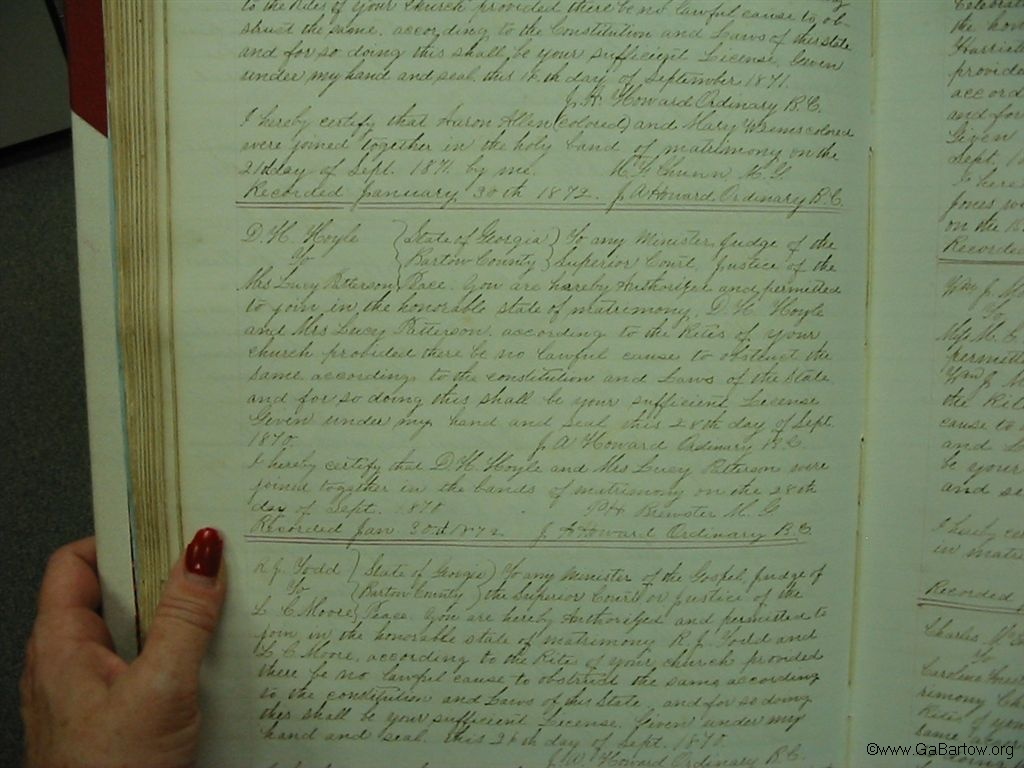 to the Rites of your Church provided there be no lawful cause to ob-
struct the same, according to the Constitution and Laws of this state
and for so doing this shall be your sufficient License, Given
under my hand and seal this 18th day of September 1871.
J. A. Howard Ordinary B.C.
I hereby certify that Aaron Allen (colored) and Mary Weems colored
were joined together in the holy band of matrimony on the
21st day of Sept. 1871 by me. M.G.
Recorded January 30th 1872. J. A Howard Ordinary B.C.
D. H. Hoyle State of Georgia To any Minister, Judge of the
To Bartow County Superior Court, Justice of the
Mrs Lucy Patterson Peace. You are hereby Authorized and permitted
to join in the honorable state of matrimony, D. H. Hoyle
and Mrs Lucy Patterson, according to the Rites of your
church provided there be no lawful cause to obstruct the
same according to the constitution and Laws of the State
and for so doing this shall be your sufficient License
Given under my hand and seal this 28th day of Sept.
1870. J. A Howard Ordinary B.C.
I hereby certify that D. H. Hoyle and Mrs Lucy Patterson were
joined together in the bands of matrimony on the 28th
day of Sept. 1870 P. H. Brewster M.G
Recorded Jan 30th 1872. J. A Howard Ordinary B.C.
R. J. Todd State of Georgia To any Minister of the Gospel, Judge of
To Bartow County the Superior Court or Justice of the
L. C Moore Peace. You are hereby Authorized and permitted to
join in the honorable state of matrimony R. J. Todd and
L. C Moore, according to the Rites of your church provided
there be no lawful cause to obstruct the same according
to the constitution and Laws of this State and for so doing
this shall be your sufficient License. Given under my
hand and seal this 26th day of Sept. 1870.
Howard Ordinary B.C.
the
Harriet
provide
accord
and for
Given
Sept. 1
I here
Jones we
on the
Recorde
Wm J. Mc
To
permitt
Wm J. M
the Rit
cause to
and L
be your
and se
in matri
Recorded
Charles
To
Carolina
rimony Ch
Rites of you
same
©www.GaBartow.org